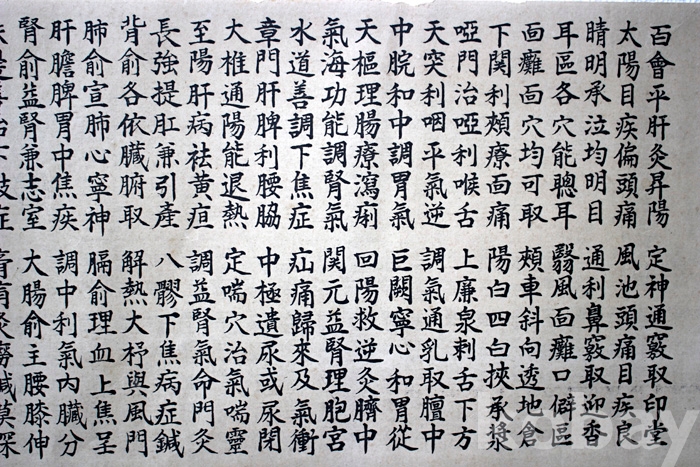 百會平肝灸昇陽 定神通竅取印堂
太陽目疾偏頭痛 風池頭痛目疾良
睛明承泣均明目 通利鼻竅取迎香
耳區各穴能聰耳 翳風面癱口僻區
面癱面穴均可取 頰車斜向透地倉
下関利頰療面痛 陽白四白挾承漿
啞門治啞利喉舌 上廉泉刺舌下方
天突利咽平氣逆 調氣通乳取膻中
中脘和中調胃氣 巨闕寧心和胃從
天樞理腸療瀉痢 回陽救逆灸臍中
氣海功能調腎氣 関元益腎理胞宮
水道善調下焦症 疝痛歸來及氣衝
章門肝脾利腰脇 中極遺尿或尿閉
大椎通陽能退熱 定喘穴治氣喘靈
至陽肝病祛黃疸 調益腎氣命門灸
長強提肛兼引產 八髎下焦病症鍼
背俞各依臟腑取 解熱大杼與風門
肺俞宣肺心寧神 膈俞理血上焦呈
肝膽脾胃中焦疾 調中利氣內臟分
腎俞益腎兼志室 大腸俞主腰膝伸